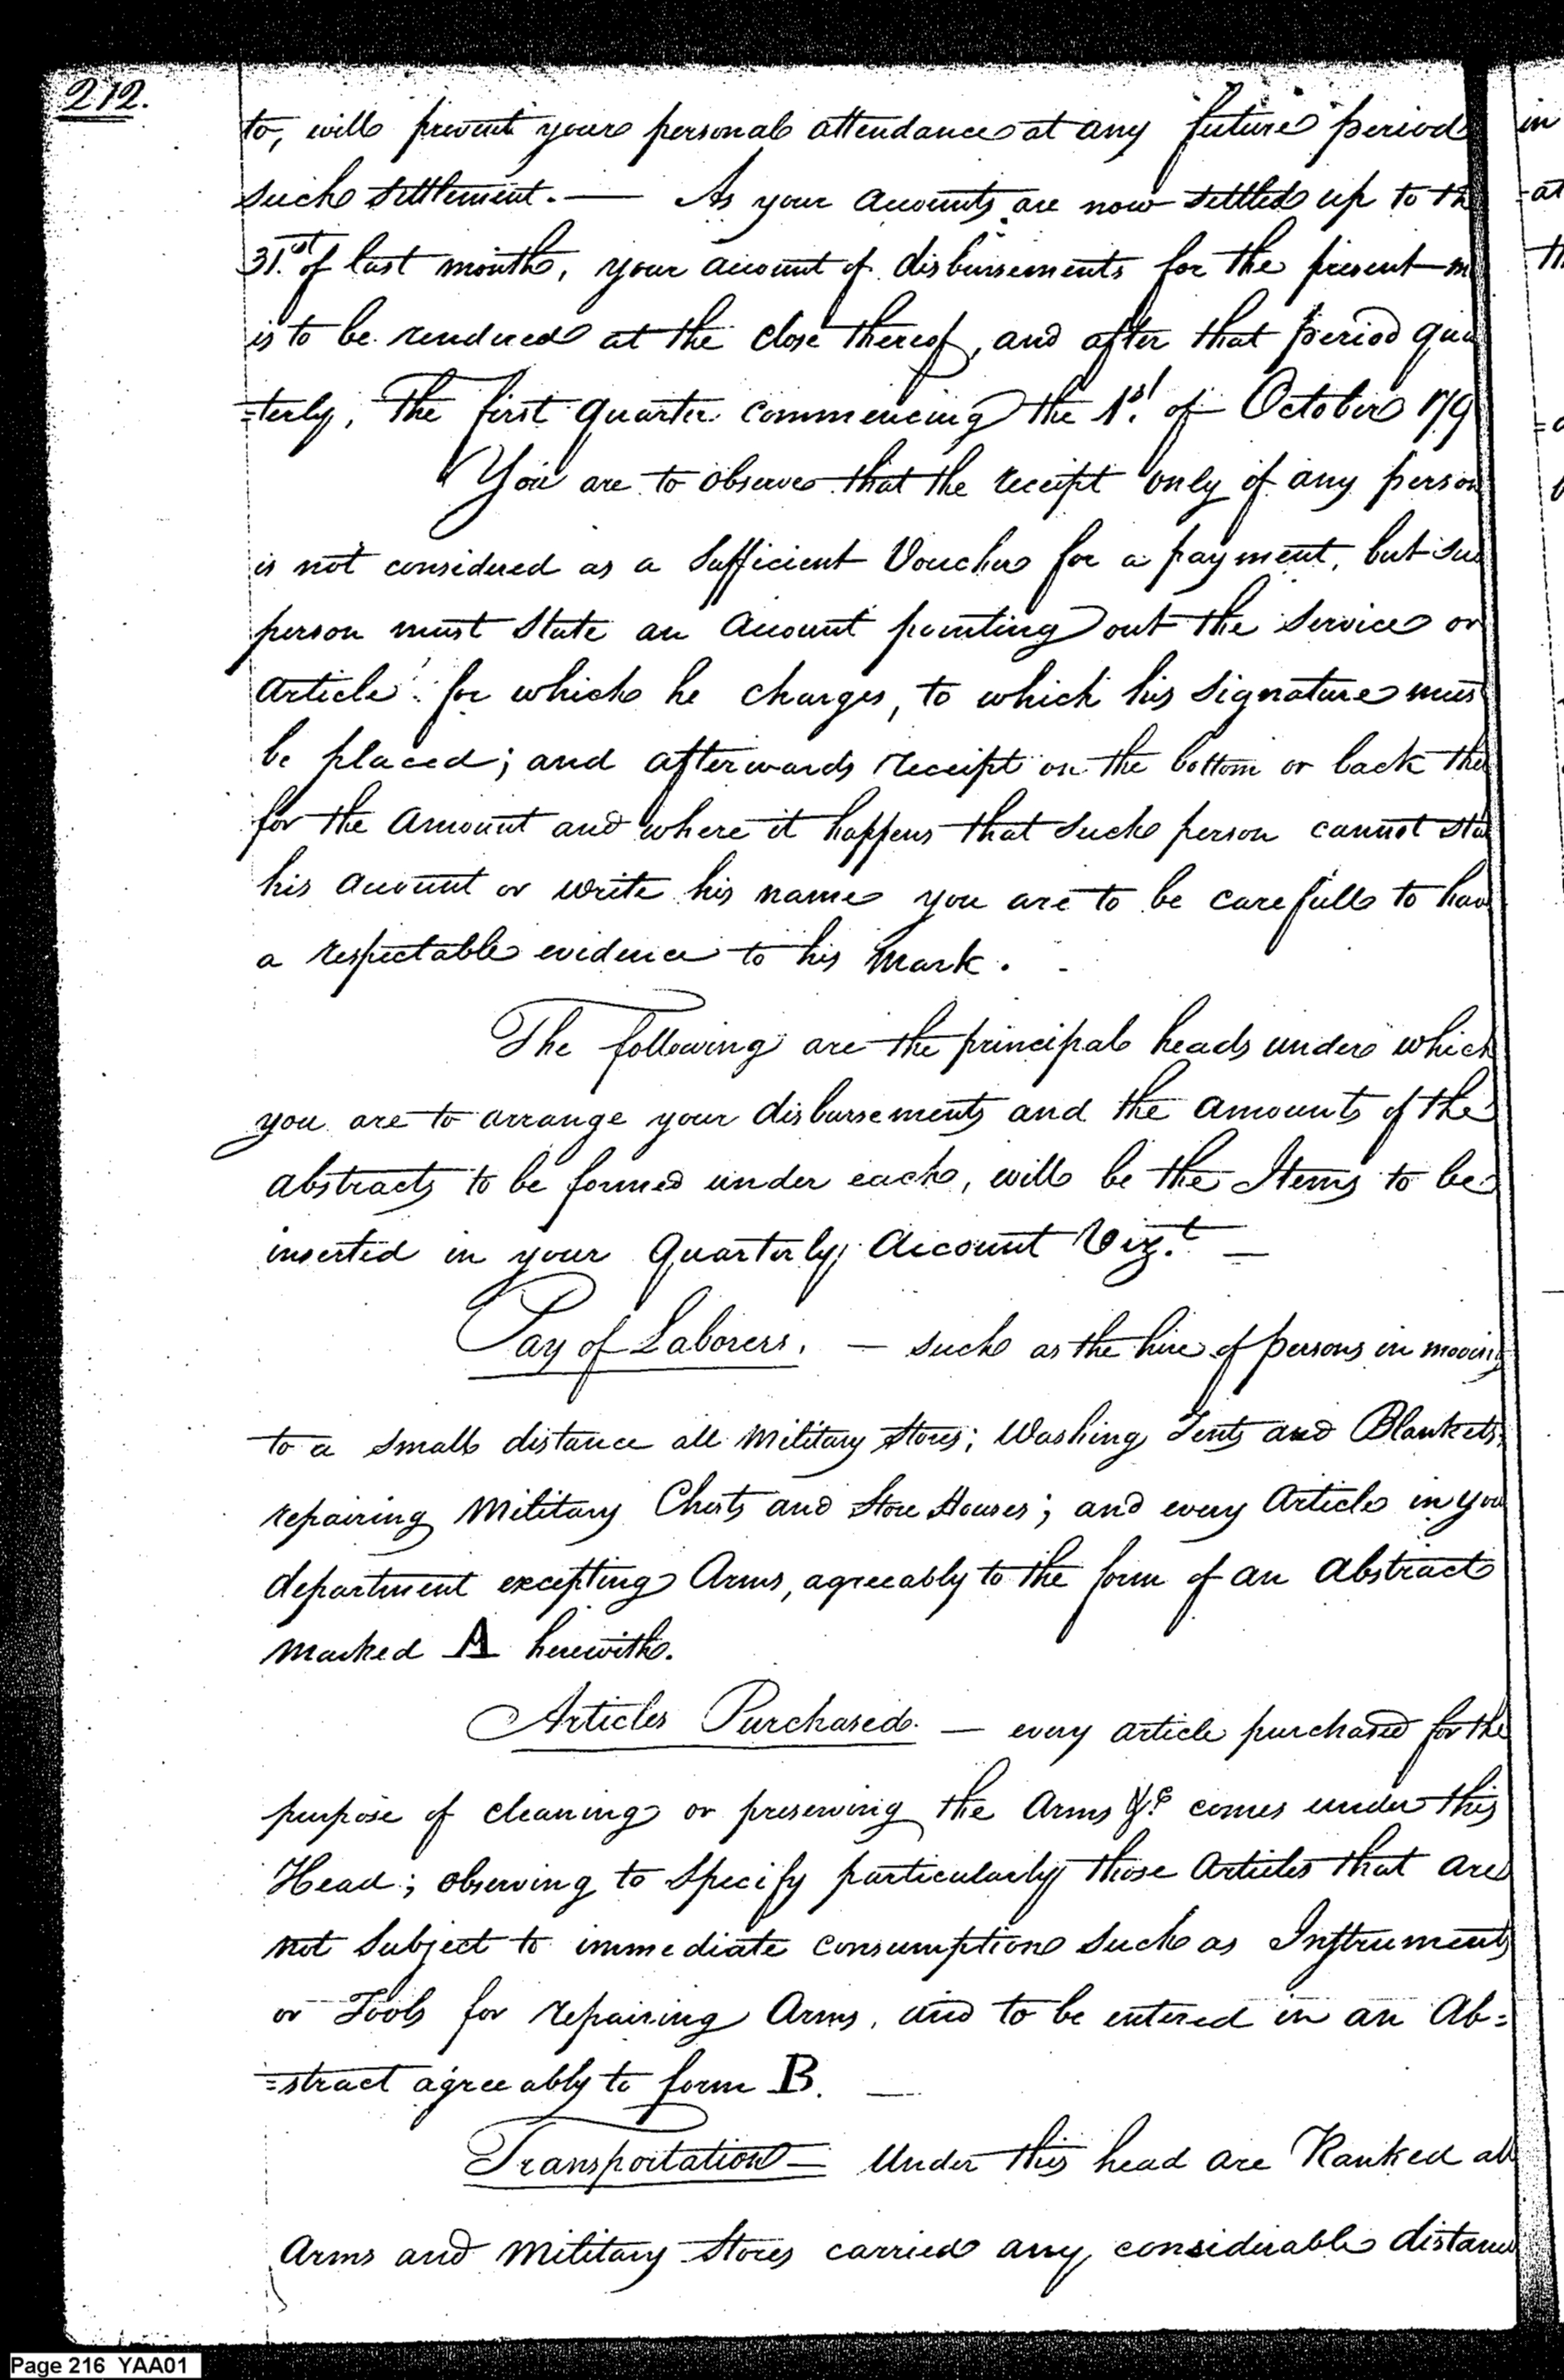 212.
to, will prevent your personal attendance at any future period
such settlement. — As your accounts are now settled up to th
31.st of last month, your account of disbursements for the present m
is to be rendered at the close thereof, and after that period qua
=terly, The first quarter commencing the 1st. of October 179
You are to observe that the receipt only of any person
is not considered as a Sufficient Voucher for a payment, but suc
person must State an Account pointing out the Service or
Article for which he charges, to which his Signature mus
be placed; and afterwards receipt on the bottom or back the
for the amount and where it happens that such person cannot sta
his account or write his name you are to be carefull to hav
a respectable evidence to his mark. -
The following are the principal heads under which
you are to arrange your disbursements and the amounts of the
abstracts to be formed under each, will be the Items to be
inserted in your Quarterly Account Vizt. —
Pay of Laborers. — such as the hire of persons in moving
to a small distance all military Stores; Washing Tents and Blankets,
repairing Military Chests and Store Houses; and every Article in you
department excepting Arms, agreeably to the form of an Abstract
marked A herewith.
Articles Purchased. — every article purchased for the
purpose of cleaning or preserving the Arms &c comes under this
Head; observing to Specify particularly those Articles that are
not Subject to immediate consumption such as Instruments
or Tools for repairing Arms, and to be entered in an Ab=
=stract agreeably to form B. —
Transportation — Under this head are Ranked all
Arms and Military Stores carried any considerable distanc
in
-at
=
Page 216 YAA01